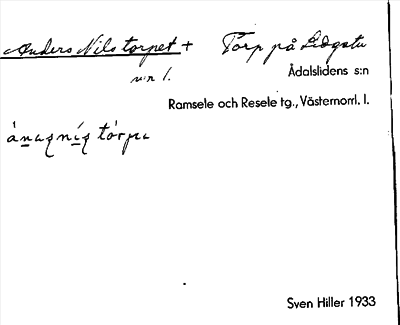 Anders Nils torpet + Torp på Lidgatu
n:r 1. Ådalslidens s:n
Ramsele och Resele tg., Västernorrl. l.
Sven Hiller 1933